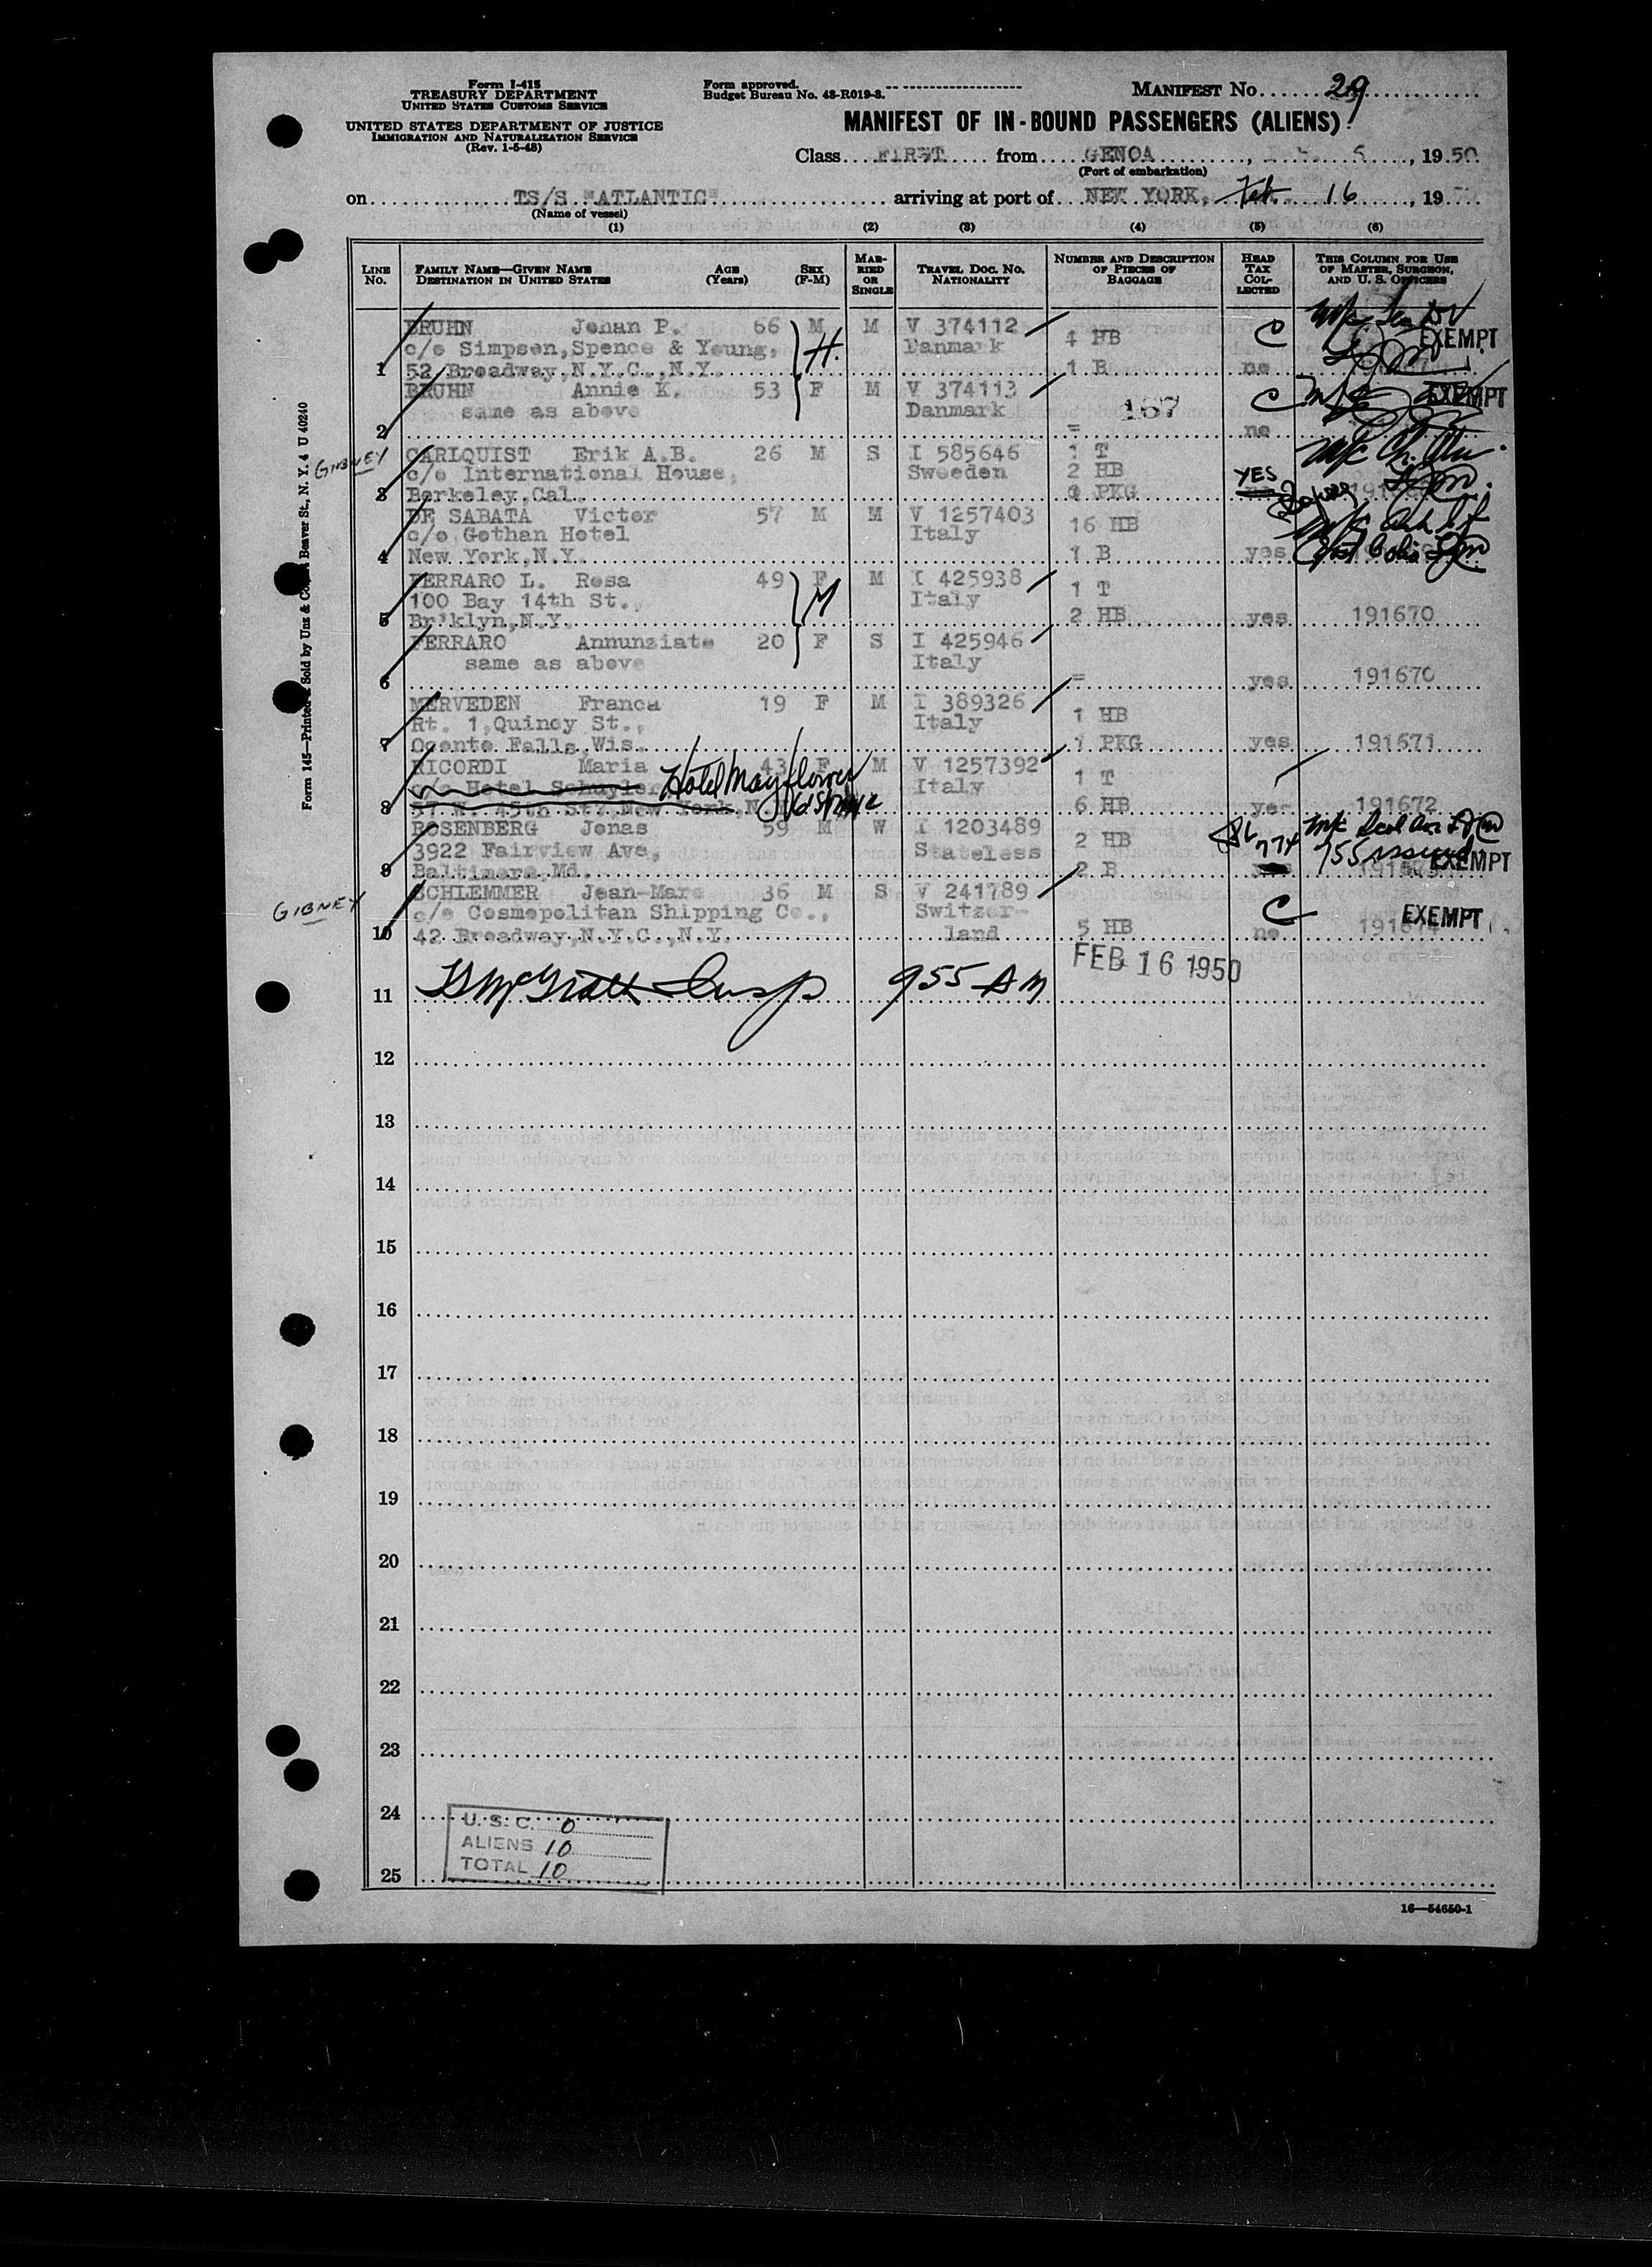 Form I-415
TREASURY DEPARTMENT
UNITED STATES CUSTOMS SERVICE
UNITED STATES DEPARTMENT OF JUSTICE
IMMIGRATION AND NATURALIZATION SERVICE
(Rev. 1-5-48)
Form approved.
Budget Bureau No. 43-R019-3.
MANIFEST No. 29
MANIFEST OF IN-BOUND PASSENGERS (ALIENS)
Class FIRST from GENOA, 1950
(Port of embarkation)
on TS/S "ATLANTIC" arriving at port of NEW YORK, Feb. 16, 19
(Name of vessel)
(1) (2) (3) (4) (5) (6)
LINE No. FAMILY NAME—GIVEN NAME DESTINATION IN UNITED STATES AGE (Years) SEX (F-M) MARRIED OR SINGLE TRAVEL DOC. No. NATIONALITY NUMBER AND DESCRIPTION OF PIECES OF BAGGAGE HEAD TAX COLLECTED THIS COLUMN FOR USE OF MASTER, SURGEON, AND U. S. OFFICERS
BRUHN Johan P. 66 M M V 374112 C
c/o Simpson,Spence & Young, H. Danmark 4 HB EXEMPT
1 52 Broadway,N.Y.C.,N.Y. 1 B no
BRUHN Annie K. 53 F M V 374113 C EXEMPT
same as above Danmark 167
2 = no
GIBNEY CARLQUIST Erik A.B. 26 M S I 585646 1 T
c/o International House, Sweden 2 HB YES
3 Berkeley,Cal. PKG
DE SABATA Victor 57 M M V 1257403
c/o Gothan Hotel Italy 16 HB
4 New York,N.Y. 1 B yes
FERRARO L. Rosa 49 F M I 425938 1 T
100 Bay 14th St., M Italy
5 Br'klyn,N.Y. 2 HB yes 191670
FERRARO Annunziate 20 F S I 425946
same as above Italy
6 = yes 191670
MERVEDEN Franca 19 F M I 389326
Rt. 1,Quincy St., Italy 1 HB
7 Oconto Falls,Wis. 1 PKG yes 191671
RICORDI Maria 43 F M V 1257392
c/o Hotel Schuyler Hotel Mayflower Italy 1 T
8 57 W. 45th St.,New York,N. 6 HB yes 191672
ROSENBERG Jonas 59 M W I 1203489
3922 Fairview Ave, Stateless 2 HB 774
9 Baltimore,Md. 2 B EXEMPT
GIBNEY SCHLEMMER Jean-Marc 36 M S V 241789
c/o Cosmopolitan Shipping Co., Switzer- C EXEMPT
10 42 Broadway,N.Y.C.,N.Y. land 5 HB no 191674
FEB 16 1950
11 955 AM
12
13
14
15
16
17
18
19
20
21
22
23
24
U. S. C. 0
ALIENS 10
TOTAL 10
25
16—54650-1